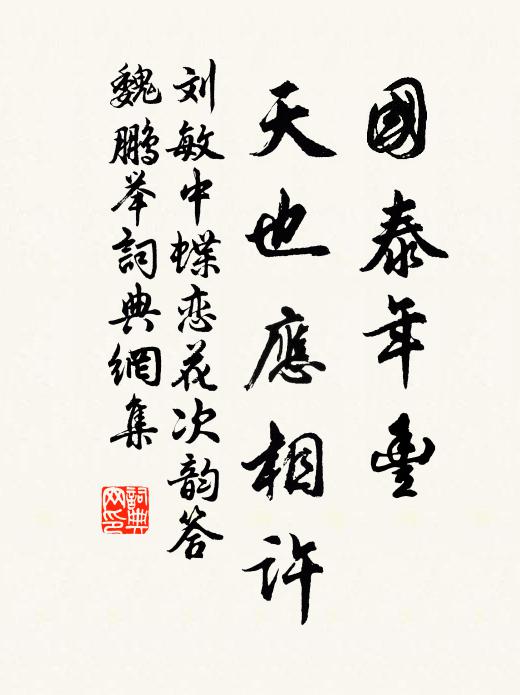 國泰年豐
天也應相許
刘敏中蝶恋花次韵答
魏鹏举詞典網集
詞典
网印